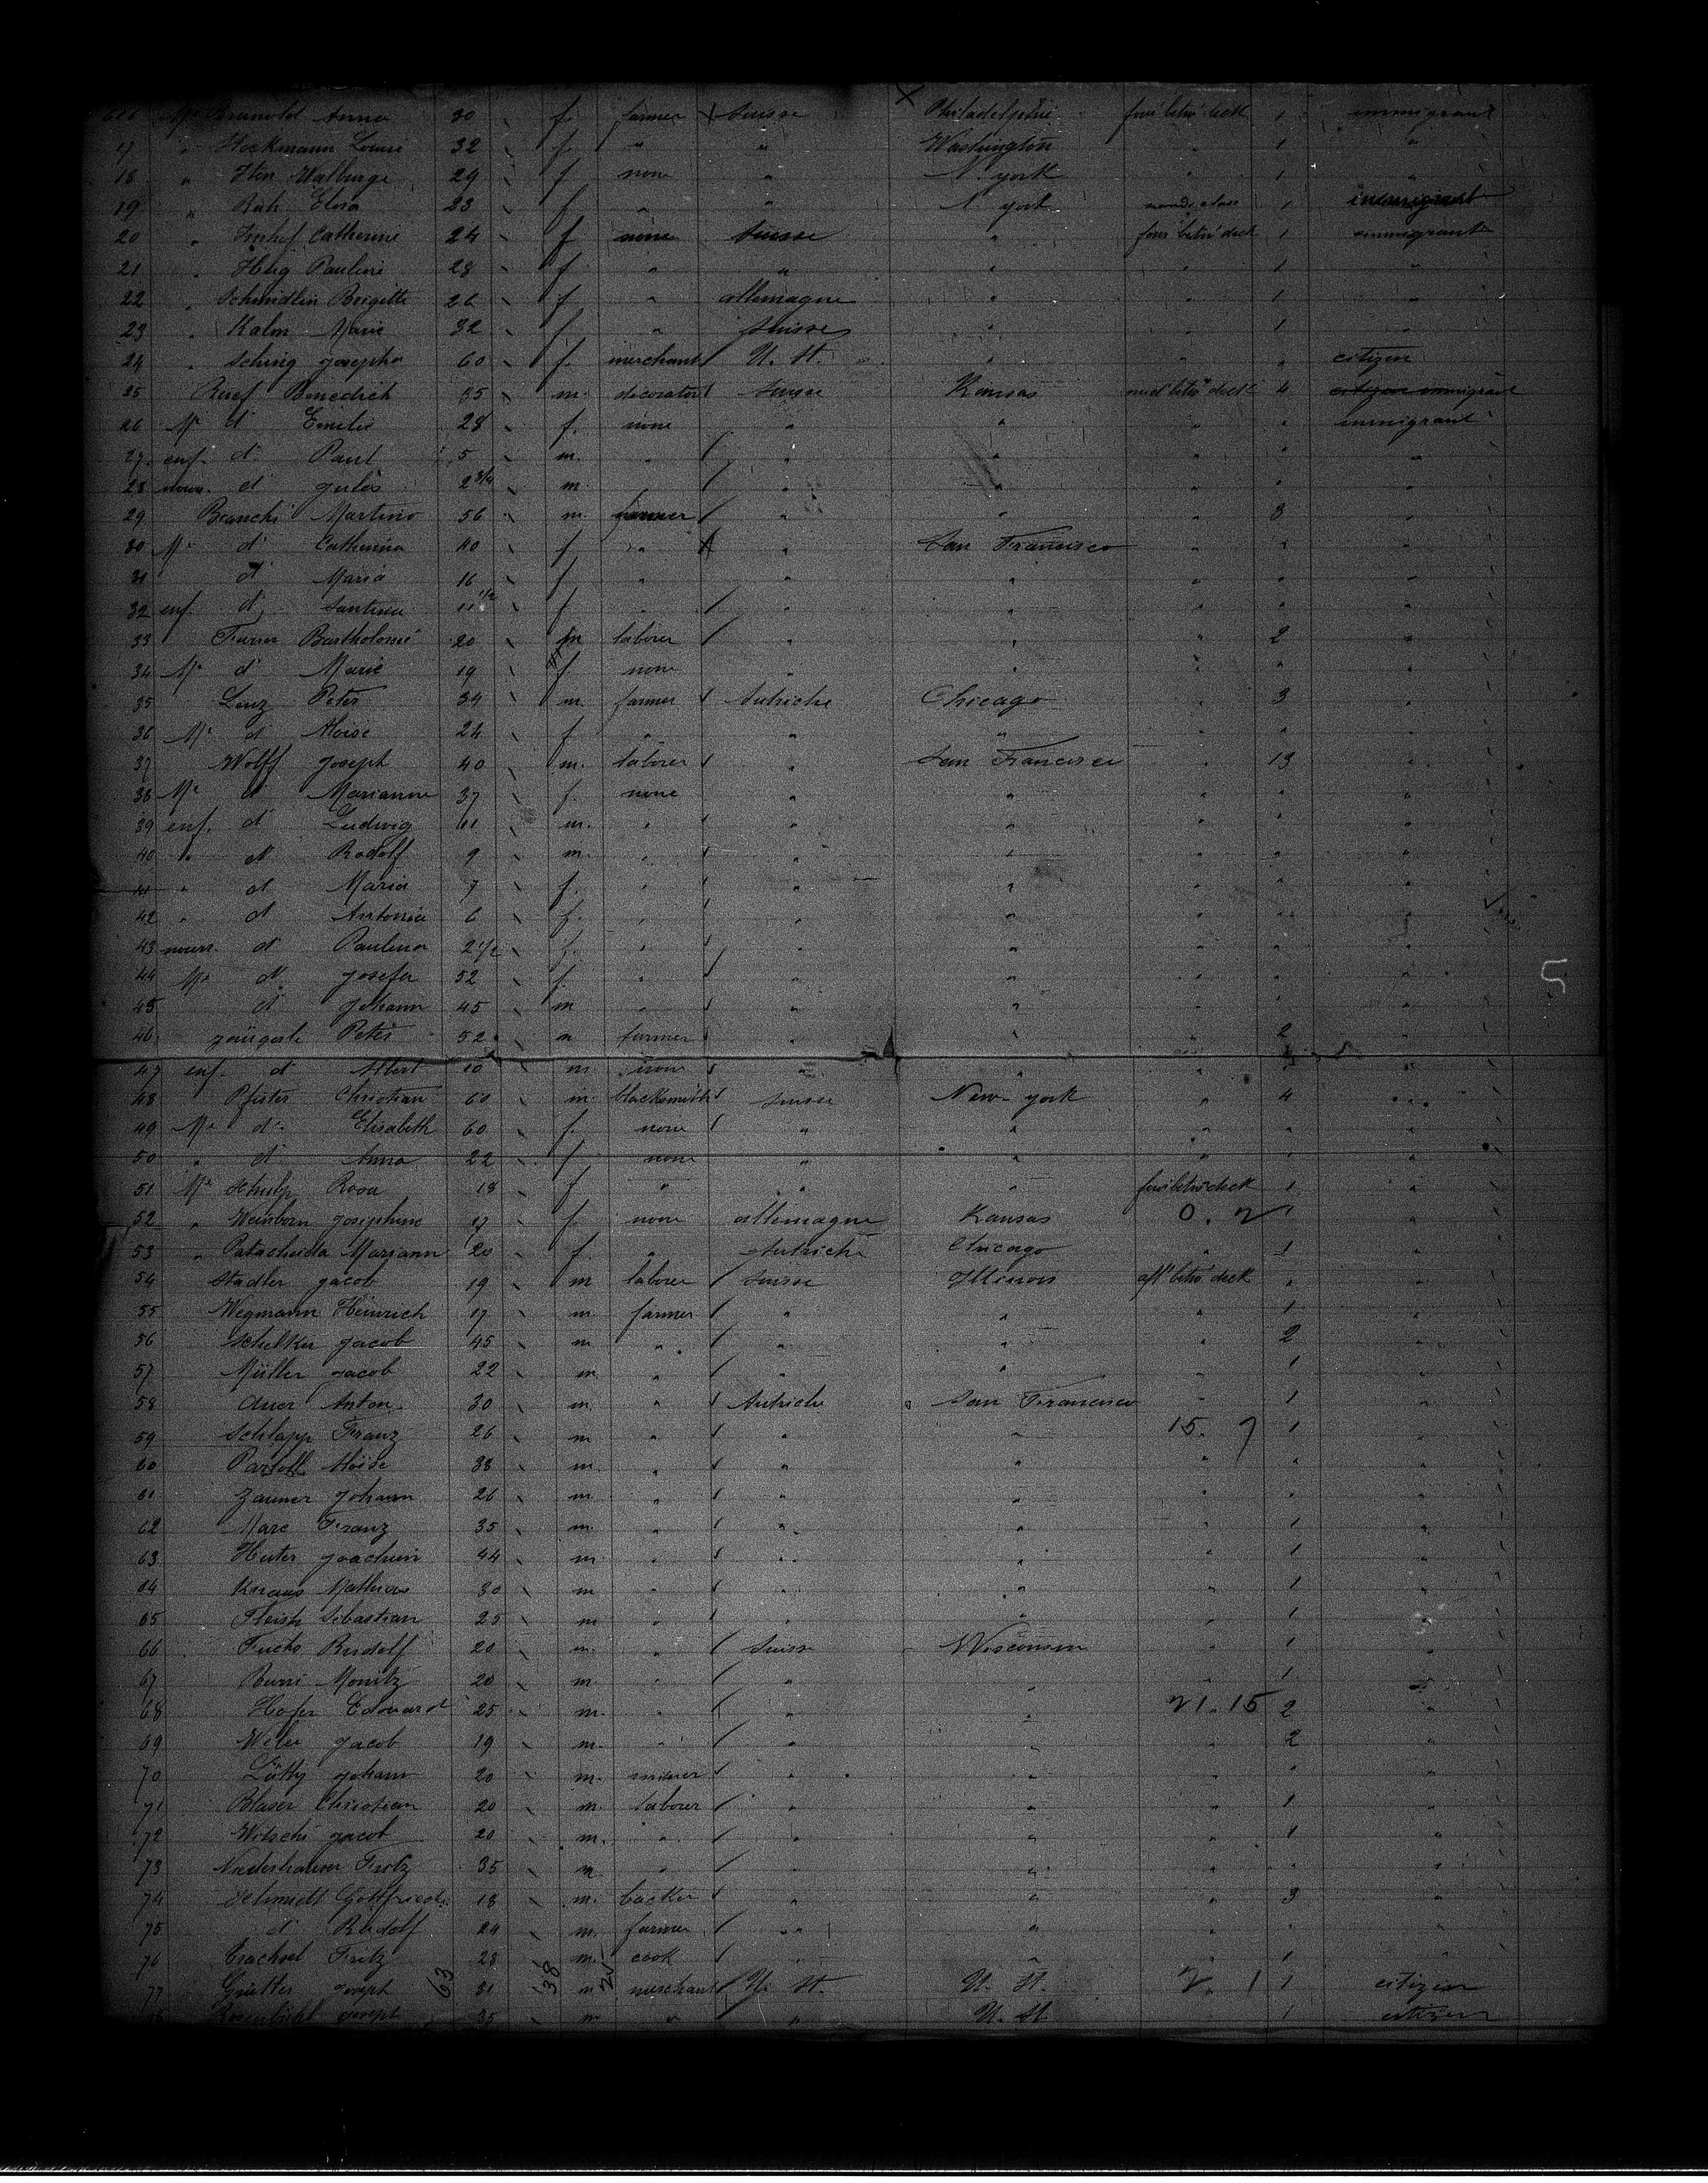 616 Me Brunold Anna 30 f. farmer Suisse Philadelphie four betw deck 1 immigrant
17 " Heckmann Louise 32 f. " " Washington " 1 "
18 " Walburge 29 f none " N. york " 1 "
19 " Ruh Elisa 23 f " " N. york class 1 immigrant
20 " Imhof Catherine 24 f none Suisse " four betw deck 1 immigrant
21 " Hug Pauline 28 f " " " " 1 "
22 " Schmidlin Brigitte 26 f " allemagne " " 1 "
23 " Kalm Marie 32 f " Suisse " " 1 "
24 " Schirig Josepha 60 f. merchant U. St. " " " citizen
25 Ruef Benedich 35 m. decorator Suisse Kansas mid betw deck 4 citizen immigrant
26 Me d° Emilie 28 f. none " " " " immigrant
27 enf. d° Paul 5 m. " " " " " "
28 nourr. d° Jules 2 3/4 m " " " " "
29 Bianchi Martino 56 m. farmer " " " 3 "
30 Me d° Catherina 40 f " " San Francisco " " "
31 d° Maria 16 f " " " " " "
32 enf. d° Santina 11 1/2 f " " " " " "
33 Furrer Bartholomé 20 m laborer " " " 2 "
34 Me d° Marie 19 f none " " " " "
35 Linz Peter 34 m farmer Autriche Chicago " 3 "
36 Me d° Aloise 24 f " " " " " "
37 Wolff Joseph 40 m. laborer " San Francisco " 13 "
38 Me d° Marianne 37 f. none " " " " "
39 enf. d° Ludwig 11 m. " " " " " "
40 " d° Rodolf 9 m. " " " " " "
41 " d° Maria 7 f. " " " " " "
42 " d° Antonia 6 f. " " " " " "
43 nourr. d° Paulina 2 1/2 f. " " " " " "
44 Me d° Josefa 52 f. " " " " " "
45 d° Johann 45 m " " " " " "
46 Peter 52 m farmer " " " 2 "
47 enf. d° Albert 10 m. none " " " "
48 Pfister Christian 60 m. blacksmith Suisse New-york " 4 "
49 Me d° Elisabeth 60 f. none " " " " "
50 " d° Anna 22 f none " " " " "
51 Me Schulp Rosa 18 f " " " four betw deck 1 "
52 " Weinborn Josephine 17 f. none allemagne Kansas 0. 2 1 "
53 " Patacheida Mariann 20 f. " Autriche Chicago " 1 "
54 Stadler Jacob 19 m laborer Suisse Illinois aft betw deck " "
55 Wegmann Heinrich 17 m. farmer " " " 1 "
56 Schelker Jacob 45 m " " " " 2 "
57 Müller Jacob 22 m. " " " 1 "
58 Auer Anton 30 m. " Autriche San Francisco " 1 "
59 Schlapp Franz 26 m " " " 15. 7 1 "
60 Partoll Aloise 38 m. " " " " " "
61 Zauner Johann 26 m. " " " " " "
62 Marc Franz 35 m. " " " " 1 "
63 Huter Joachim 44 m. " " " " 1 "
64 Knaus Mathias 30 m " " " " 1 "
65 Fleish Sebastian 25 m " " " " 1 "
66 Fuchs Rudolf 20 m. " Suisse Wisconsin " 1 "
67 Burri Moritz 20 m. " " " " 1 "
68 Hofer Edouard 25 m. " " " 21. 15 2 "
69 Weler Jacob 19 m. " " " " 2 "
70 Lüthy Johann 20 m. " " " " "
71 Blaser Christian 20 m. laborer " " " 1 "
72 Witschi Jacob 20 m. " " " " 1 "
73 Niederhauser Fritz 35 m " " " " " "
74 Schmidt Gottfried 18 m. backer " " " 3 "
75 d° Rudolf 24 m. farmer " " " " "
76 Trachsel Fritz 28 m. cook " " " 1 "
77 Grütter Joseph 51 m merchant U. St. U. St. 2. 1 1 citizen
78 Joseph 35 m " " U. St. 1 citizen
63 38 25
5